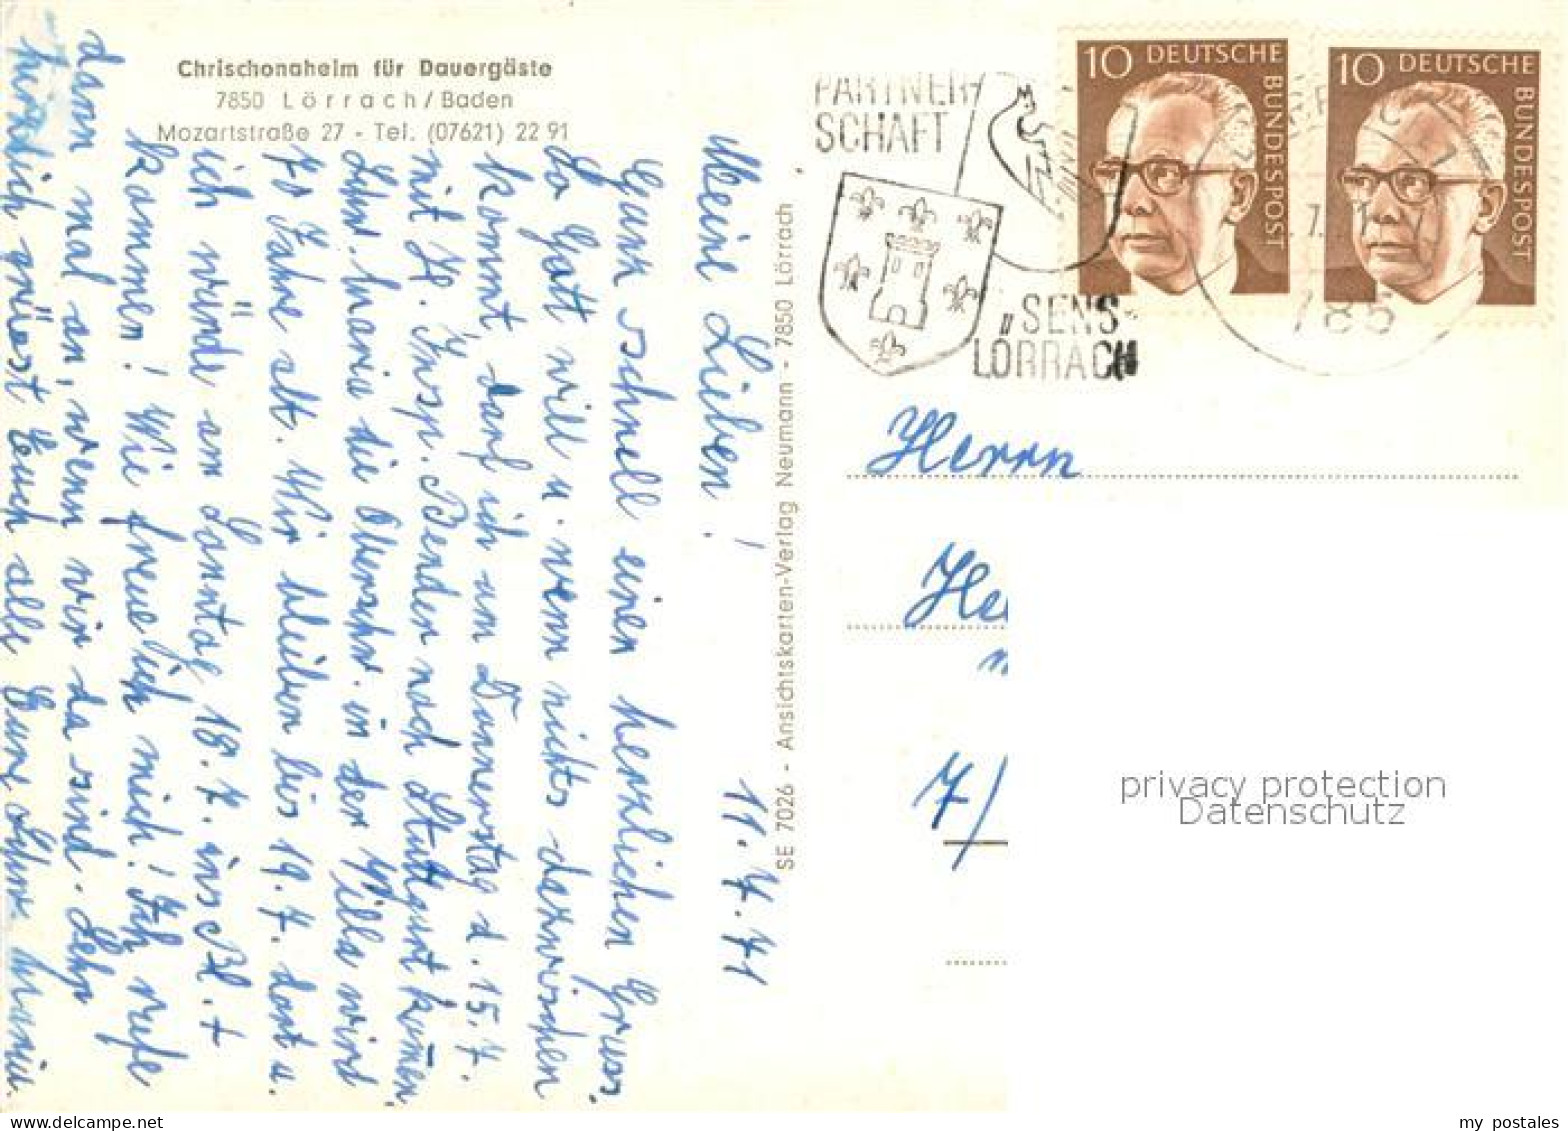 Chrischonaheim für Dauergäste
7850 Lörrach/Baden
Mozartstraße 27 - Tel. (07621) 22 91
11.7.71
Meine Lieben!
Ganz schnell einen herzlichen Gruss.
So Gott will u. wenn nichts dazwischen
kommt, darf ich am Donnerstag d. 15.7.
mit H. Insp. Bender nach Stuttgart kom̄en.
Schw. Maria die Oberschw. in der Villa wird
70 Jahre alt. Wir bleiben bis 19.7. dort u.
ich würde am Sonntag 18.7. ins
kommen! Wie freue ich mich! Ich rufe
dann mal an, wenn wir da sind.
herzlich grüsst Euch alle Eure Schw.
SE 7026 - Ansichtskarten-Verlag Neumann - 7850 Lörrach
PARTNER-
SCHAFT
SENS-
LÖRRACH
10 DEUTSCHE
BUNDESPOST
10 DEUTSCHE
BUNDESPOST
785
Herrn
7/
privacy protection
Datenschutz
my postales